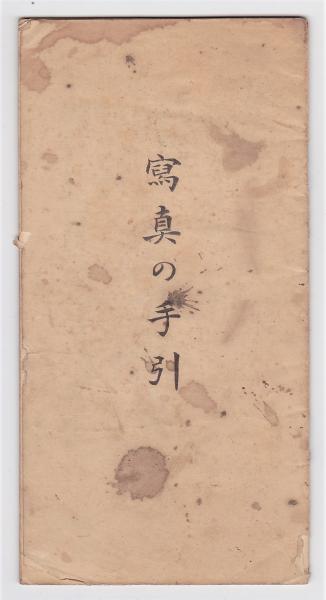 寫真の手引